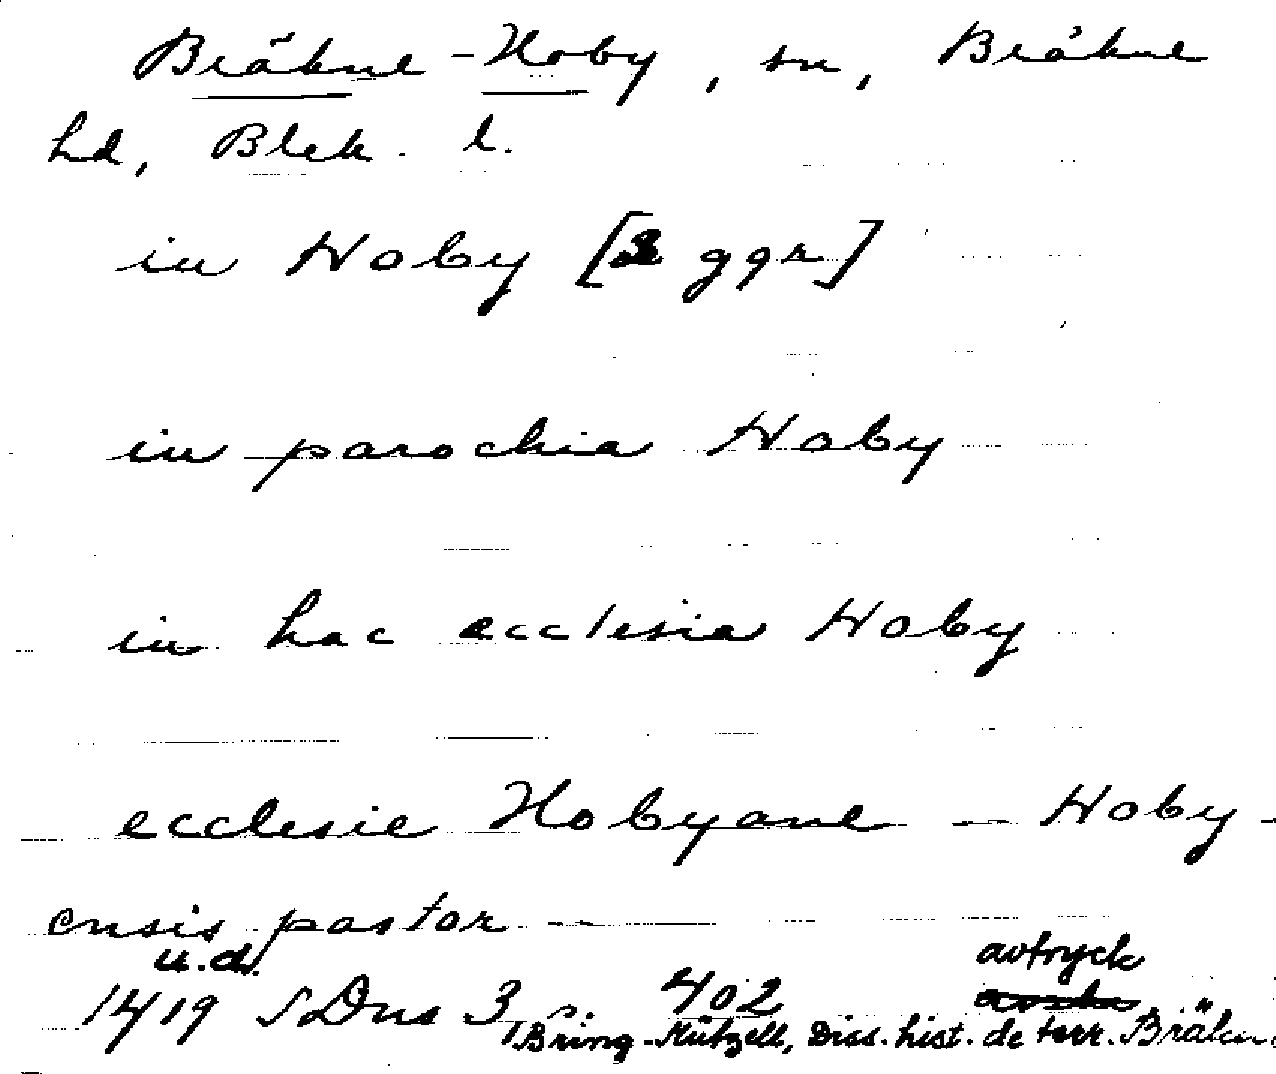 Bräkne-Hoby, sn, Bräkne
hd, Blek. l.
in Hoby [2 ggr]
in parochia Hoby
in hac ecclesia Hoby
ecclesie Hobyane — Hoby-
ensis pastor —
u.d. avtryck
1419 SDns 3, s. 402
Bring-Mützell, Diss. hist. de terr. Bräkn.